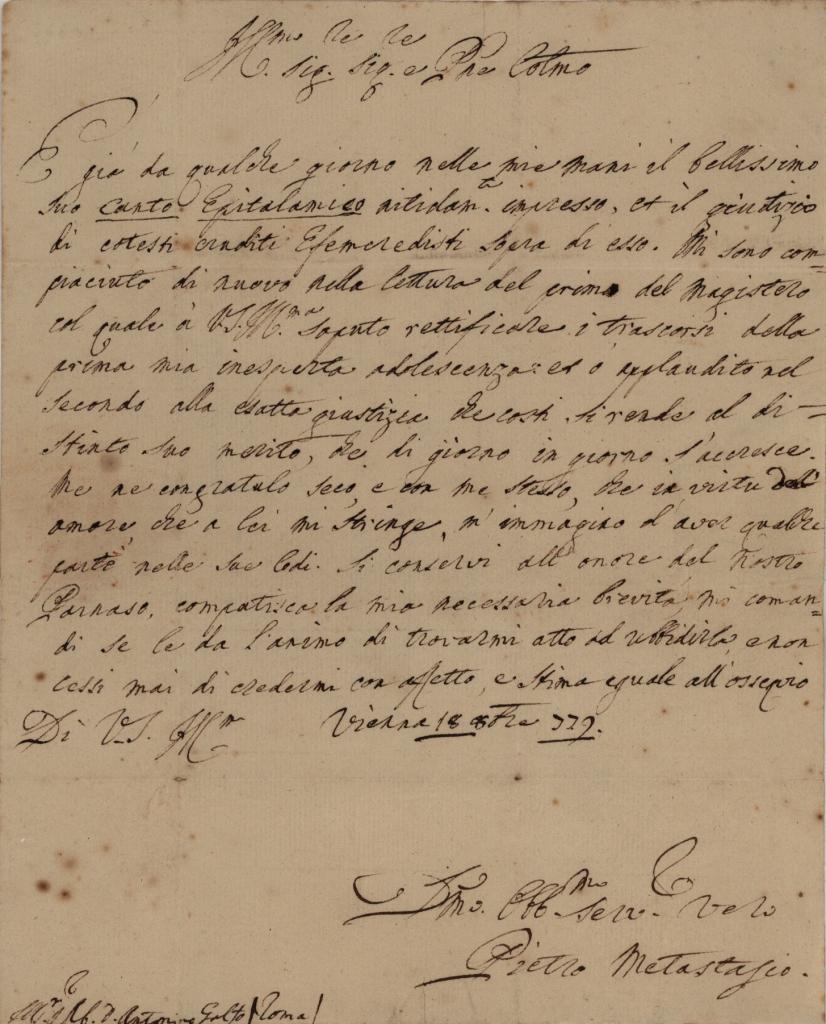 Ill.mo Sig.re Sig.re e Pne Colmo
È già da qualche giorno nelle mie mani il bellissimo
suo Canto Epitalamico nitidam.te impresso, et il giudizio
di cotesti eruditi Efemeredisti sopra di esso. Mi sono com=
piaciuto di nuovo nella lettura del primo del Magistero
col quale à V.S. Ill.ma saputo rettificare i trascorsi della
prima mia inesperta adolescenza: et ò applaudito nel
secondo alla esatta giustizia che costì si rende al di=
stinto suo merito, che di giorno in giorno s'accresce.
Me ne congratulo seco, e con me stesso, che in virtù dell'
amore, che a lei mi stringe, m'immagino d'aver qualche
parte nelle sue lodi. Si conservi all'onore del nostro
Parnaso, compatisca la mia necessaria brevità, mi coman=
di se le da l'animo di trovarmi atto ad ubbidirla, e non
cessi mai di credermi con affetto, e stima eguale all'ossequio
Di V.S. Ill.ma Vienna 18 8bre 779.
Dmo. Obb.mo Serv.re vero
Pietro Metastasio.
Sig.r Ab. D. Antonino Galfo (Roma)